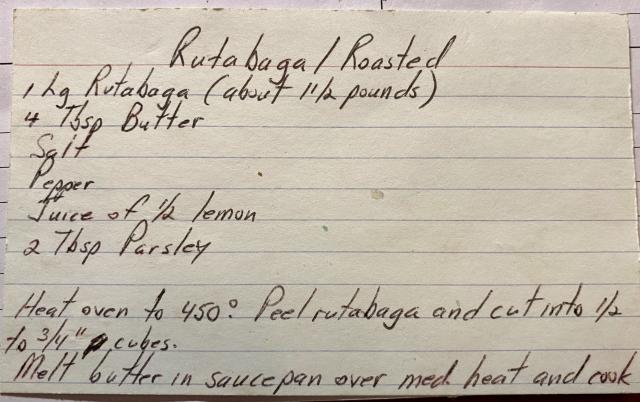 Rutabaga / Roasted
1 Lg Rutabaga (about 1 1/2 pounds)
4 Tbsp Butter
Salt
Pepper
Juice of 1/2 lemon
2 Tbsp Parsley
Heat oven to 450°. Peel rutabaga and cut into 1/2
to 3/4" cubes.
Melt butter in saucepan over med. heat and cook